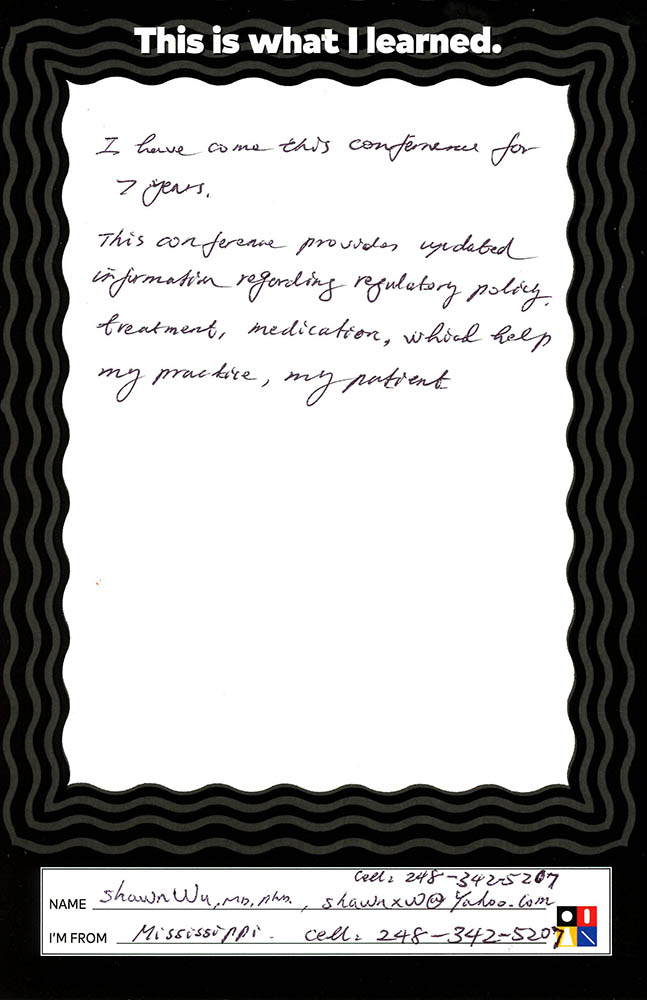 This is what I learned.
I have come this conference for
7 years.
This conference provides updated
information regarding regulatory policy,
treatment, medication, which help
my practice, my patient
Cell: 248-342-5207
NAME Shawn Wu, MD, PhD., shawnxw@Yahoo.com
I'M FROM Mississippi. Cell: 248-342-5207